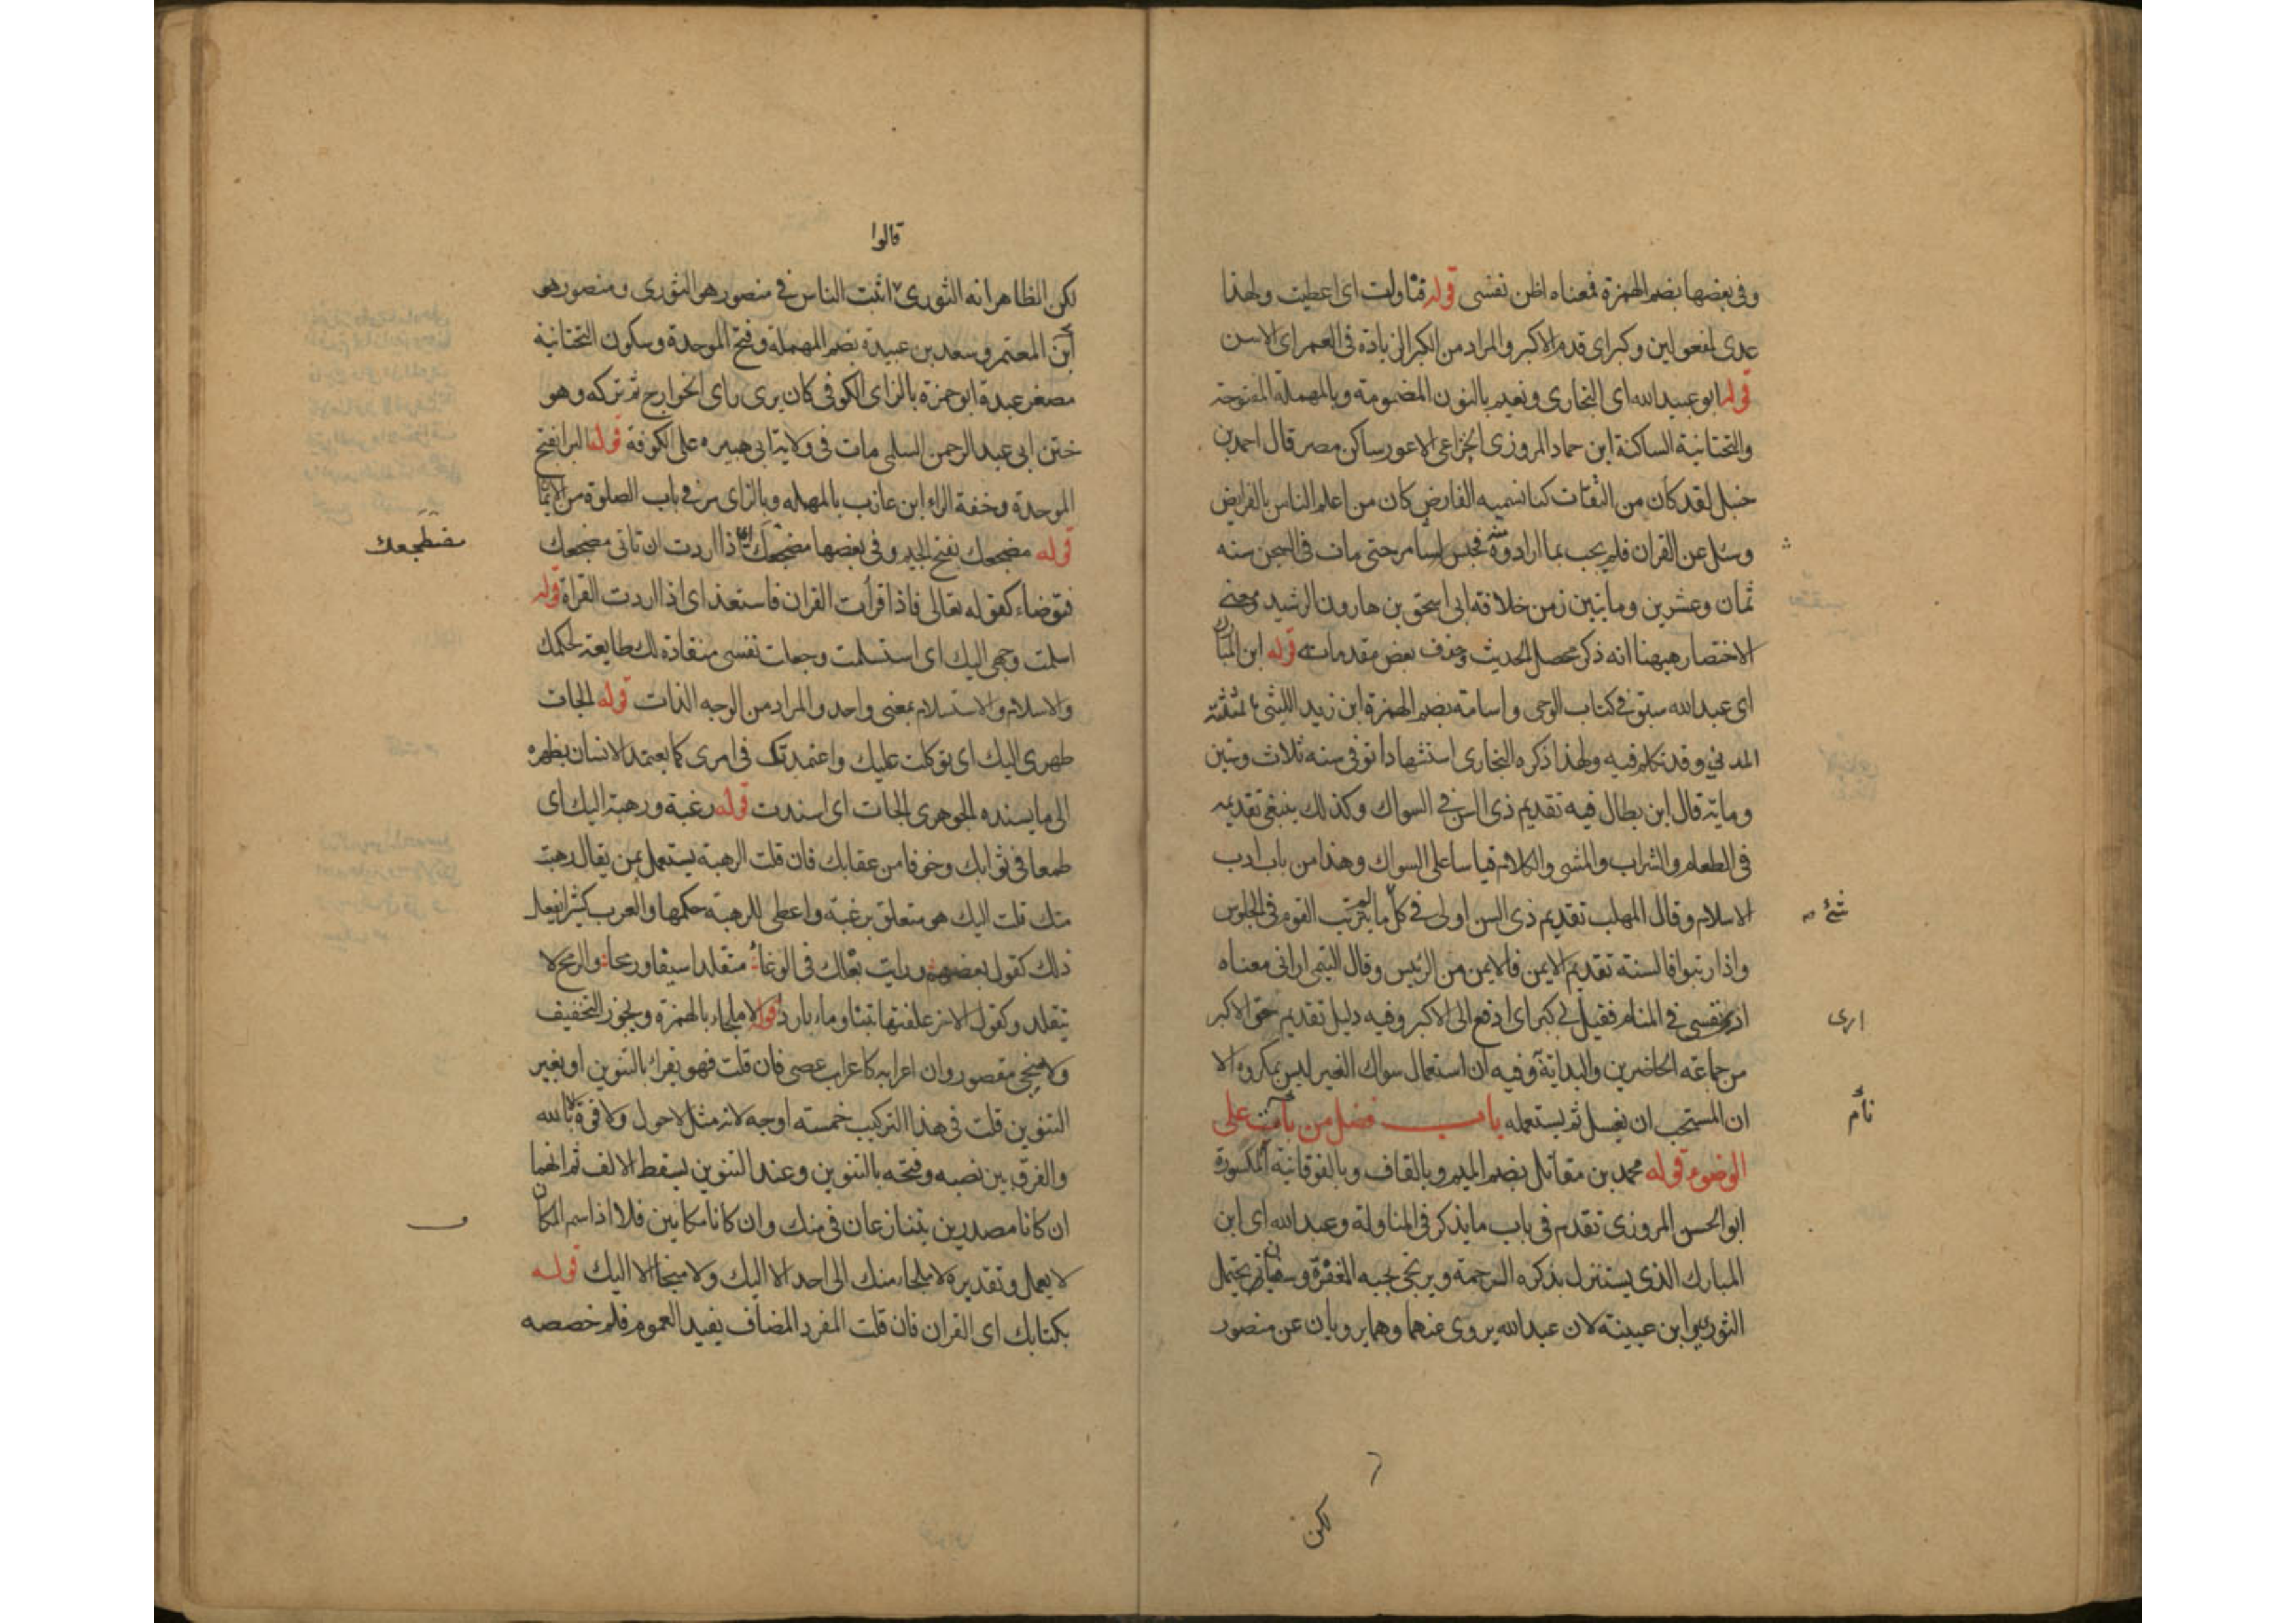 وفى بعضها بضم الهمزة فمعناه اظن نفسى قوله فناولت اى اعطيت ولهذا
عدى لمفعولين وكبر اى قدم الاكبر والمراد من الكبر الزيادة فى العمر اى الاسن
قوله ابو عبد الله اى البخارى ونعيم بالنون المضمومة وبالمهملة المفتوحة
والتحتانية الساكنة ابن حماد المروزى الخزاعى الاعور ساكن مصر قال احمد بن
حنبل لقد كان من الثقات كنا نسميه الفارض كان من اعلم الناس بالفرايض
وسئل عن القران فلم يجب بما ارادوه منه فحبس بسامرا حتى مات فى السجن سنه
ثمان وعشرين ومايتين زمن خلافة ابى اسحق بن هارون الرشيد ومعنى
الاختصار ههنا انه ذكر محصل الحديث وحذف بعض مقدماته قوله ابن المبارك
اى عبد الله سبق فى كتاب الوحى واسامة بضم الهمزة ابن زيد الليثى بمثلثة
المدنى وقد تكلم فيه ولهذا ذكره البخارى استشهادا توفى سنه ثلاث وستين
وماية قال ابن بطال فيه تقديم ذى السن فى السواك وكذلك ينبغى تقديمه
فى الطعام والشراب والمشى والكلام قياسا على السواك وهذا من باب ادب
الاسلام وقال المهلب تقديم ذى السن اولى فى كل ما لم يترتب القوم فى الجلوس
شئ
واذا رتبوا فالسنة تقديم الايمن فالايمن من الرئيس وقال التيمى ارانى معناه
ارى نفسى فى المنام فقيل لى كبر اى ادفع الى الاكبر وفيه دليل تقديم حق الاكبر
ارى
من جماعة الحاضرين والبداية وفيه ان استعمال سواك الغير ليس بمكروه الا
ان المستحب ان يغسل ثم يستعمله باب فضل من بات على
نأم
الوضوء قوله محمد بن مقاتل بضم الميم وبالقاف وبالفوقانية المكسورة
ابو الحسن المروزى تقدم فى باب ما يذكر فى المناولة وعبد الله اى ابن
المبارك الذى يستنزل بذكره الرحمة ويرتجى بحبه المغفرة وسفيان يحتمل
الثورى وابن عيينة لان عبد الله يروى عنهما وهما يرويان عن منصور
لكن
قالوا
لكن الظاهر انه الثورى اثبت الناس فى منصور هو الثورى ومنصور هو
ابن المعتمر وسعد بن عبيدة بضم المهملة وفتح الموحدة وسكون التحتانية
مصغر عبدة ابو حمزة بالزاى الكوفى كان يرى راى الخوارج ثم تركه وهو
ختن ابى عبد الرحمن السلمى مات فى ولاية ابى هبيره على الكوفة قوله البرا بفتح
الموحدة وخفة الراء ابن عازب بالمهمله وبالزاى مر فى باب الصلوة من الايمان
قوله مضجعك بفتح الجيم وفى بعضها مضجعك اى اذا اردت ان تاتى مضجعك
مضطجعك
فتوضاء كقوله تعالى فاذا قرأت القران فاستعذ اى اذا اردت القراة قوله
اسلمت وجهى اليك اى استسلمت وجعلت نفسى منقادة لك طايعة لحكمك
والاسلام والاستسلام بمعنى واحد والمراد من الوجه الذات قوله الجات
ظهرى اليك اى توكلت عليك واعتمدتك فى امرى كما يعتمد الانسان بظهره
الى ما يسنده الجوهرى الجات اى اسندت قوله رغبة ورهبة اليك اى
طمعا فى ثوابك وخوفا من عقابك فان قلت الرهبة يستعمل بمن يقال رهبت
منك قلت اليك هو متعلق برغبة واعطى للرهبة حكمها والعرب كثيرا يفعل
ذلك كقول بعضهم ورايت بعلك فى الوغا متقلدا سيفا ورمحا والرمح لا
يتقلد وكقول الاخر علفتها تبنا وماء باردا قوله لا ملجاء بالهمزة ويجوز التخفيف
ولا منجى مقصور وان اعرابه كاعراب عصى فان قلت فهو يقراء بالتنوين او بغير
التنوين قلت فى هذا التركيب خمسة اوجه لانه مثل لا حول ولا قوة الا بالله
والفرق بين نصبه وفتحه بالتنوين وعند التنوين يسقط الالف ثم انهما
ان كانا مصدرين يتنازعان فى منك وان كانا مكانين فلا اذ اسم المكان
لا يعمل وتقديره لا ملجاء منك الى احد الا اليك ولا منجا الا اليك قوله
بكتابك اى القران فان قلت المفرد المضاف يفيد العموم فلم خصصه